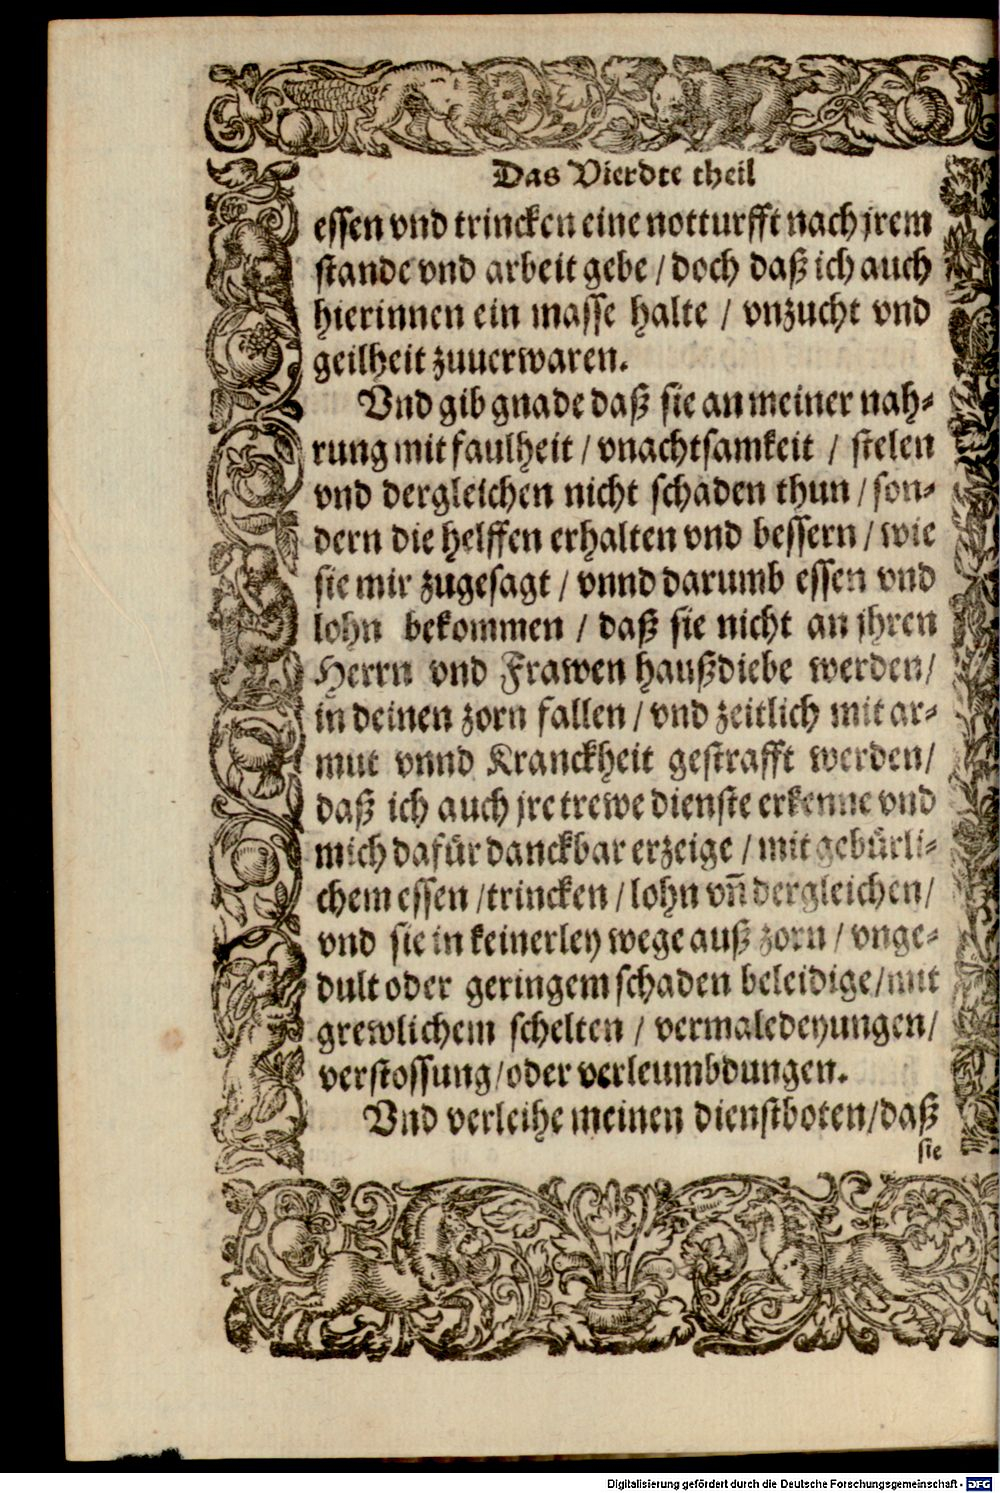 Das Vierdte theil
essen vnd trincken eine notturfft nach jrem
stande vnd arbeit gebe / doch daß ich auch
hierinnen ein masse halte / vnzucht vnd
geilheit zuuerwaren.
Vnd gib gnade daß sie an meiner nah-
rung mit faulheit / vnachtsamkeit / stelen
vnd dergleichen nicht schaden thun / son-
dern die helffen erhalten vnd bessern / wie
sie mir zugesagt / vnnd darumb essen vnd
lohn bekommen / daß sie nicht an jhren
Herrn vnd Frawen haußdiebe werden/
in deinen zorn fallen / vnd zeitlich mit ar-
mut vnnd Kranckheit gestrafft werden/
daß ich auch jre trewe dienste erkenne vnd
mich dafür danckbar erzeige / mit gebürli-
chem essen /trincken / lohn vñ dergleichen/
vnd sie in keinerley wege auß zorn / vnge-
dult oder geringem schaden beleidige/mit
grewlichem schelten / vermaledeyungen/
verstossung/oder verleumbdungen.
Vnd verleihe meinen dienstboten/daß
sie
Digitalisierung gefördert durch die Deutsche Forschungsgemeinschaft - DFG